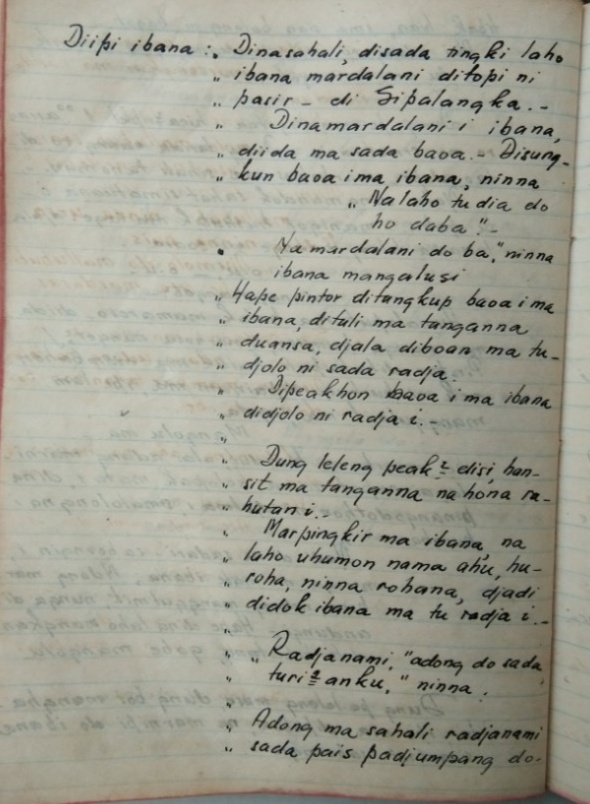 Diipi ibana :„ Dinasahali, disada tingki laho
„ ibana mardalani ditopi ni
„ pasir - di Sipalangka. -
„ Dinamardalani i ibana,
„ diida ma sada baoa. - Disung-
„ kun baoa ima ibana, ninna
„ „Na laho tu dia do
ho daba". -
„ Na mardalani do ba," ninna
ibana mangalusi
„ Hape pintor ditangkup baoa ima
„ ibana, dituli ma tanganna
„ duansa, djala diboan ma tu-
„ djolo ni sada radja.
„ Dipeakhon baoa ima ibana
„ didjolo ni radja i. -
„
„ Dung leleng peak² disi, han-
„ sit ma tanganna na hona ra-
„ hutan i. -
„ Marpingkir ma ibana, na
„ laho uhumon nama ahu, hu-
„ roha, ninna rohana, djadi
„ didok ibana ma tu radja i. -
„
„ „ Radjanami, "adong do sada
„ turi²anku," ninna.
„
„ Adong ma sahali radjanami
„ sada pais padjumpang do-